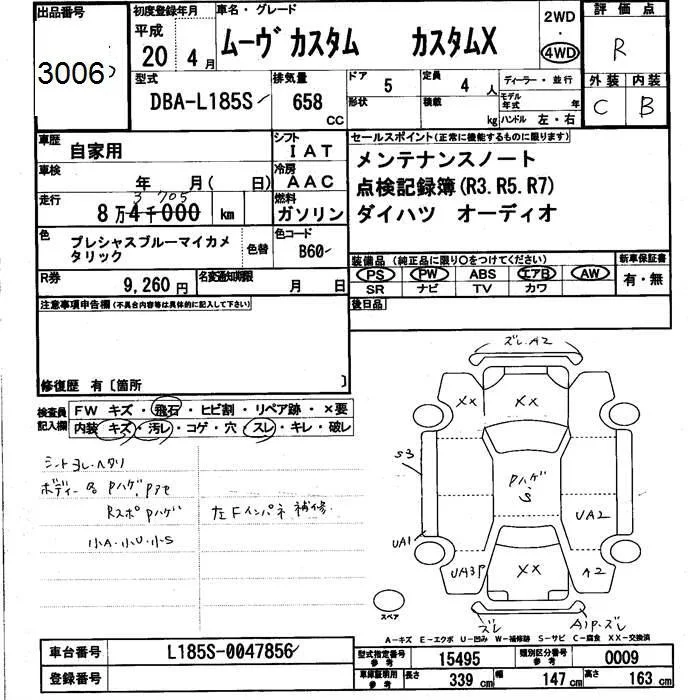 出品番号
3006
初度登録年月
平成
20年4月
車名・グレード
ムーヴ カスタム カスタムX
2WD
・
4WD
評価点
R
外装 内装
C B
型式
DBA-L185S
排気量
658
CC
ドア
5
形状
定員
4人
積載
kg
ディーラー・並行
モデル年式 年
ハンドル 左・右
車歴
自家用
シフト
IAT
車検
年 月( 日)
冷房
AAC
走行
3 705
8万4千000 km
燃料
ガソリン
色
プレシャスブルーマイカメタリック
色替
色コード
B60
R券
9,260円
名変通知期限
月 日
セールスポイント(正常に機能するものに限ります)
メンテナンスノート
点検記録簿(R3.R5.R7)
ダイハツ オーディオ
装備品(純正品に限り○をつけてください)
PS PW ABS エアB AW
SR ナビ TV カワ
新車保証書
有・無
後日品
注意事項申告欄(不具合内容等は具体的に記入して下さい)
修復歴 有〔箇所 〕
検査員記入欄
FW キズ・飛石・ヒビ割・リペア跡・×要
内装 キズ・汚レ・コゲ・穴・スレ・キレ・破レ
シートヨレ・ヘタリ
ボディー各Pハゲ,Pアセ
RスポPハゲ
小A・小U・小S
左Fインパネ補修
ズレ・A2
XX
XX
S3
Pハゲ
S
UA2
UA1
UA3P
XX
A2
ズレ
A1P・ズレ
スペア
A-キズ E-エクボ U-凹み W-補修跡 S-サビ C-腐食 XX-交換済
車台番号
L185S-0047856
登録番号
型式指定番号
参考
15495
類別区分番号
参考
0009
車庫証明用
参考
長さ
339cm
幅
147cm
高さ
163cm